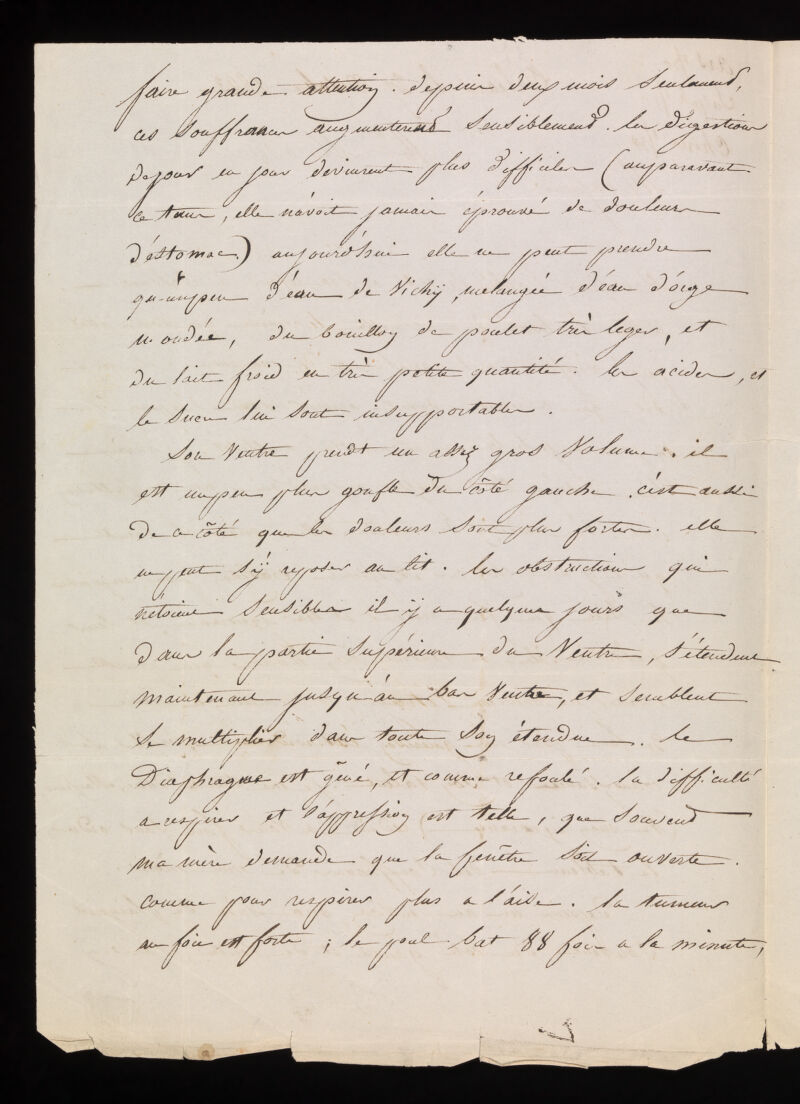 faire grande attention. depuis deux mois seulement,
ces souffrances augmenterent sensiblement. les digestions
de jour en jour devinrent plus difficiles (auparavant
ce tems, elle n'avoit jamais éprouvé de douleurs
d'éstomac) aujourd'hui elle ne peut prendre
qu'un peu d'éau de Vichÿ, melangée d'éau d'orge
mondée, du bouillon de poulet très leger, et
du lait froid en très petite quantité. les acides, et
le sucre lui sont insupportables.
Son Ventre prend un assez gros Volume. il
est un peu plus gonflé du côté gauche. c'est aussi
de ce côté que les douleurs sont plus fortes. elle
ne peut s'y reposer au lit. les obstructions qui
n'étoient sensibles il ÿ a quelques jours que
dans la partie supérieure du Ventre, s'étendent
maintenant jusqu'au bas Ventre, et semblent
se multiplier dans toute son étendue. le
Diaphragme est gêné, et comme refoulé. la difficulté
a respirer et l'oppression est telle, que souvent
ma mère demande que la fenêtre soit ouverte.
comme pour respirer plus a l'aise. la tumeur
au foie est forte; le poul bat 88 fois a la minute,